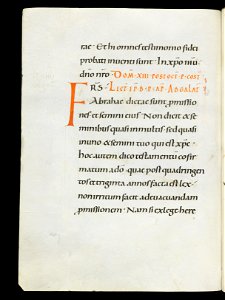 rae · Et hi omnes testimonio fidei
probati inventi sunt · In xpo ihu
dno nro · DOM · XIII · POST OCT · P̄COST̄
FRS · LECT̄ EP̄ · B · P · AP̄ · AD GALAT̄
Abrahae dictae sunt p̄missio
nes et semini eius · Non dicit & se
minibus quasi in multis · sed quasi
in uno · & semini tuo qui est xp̄c ·
hoc autem dico testamentū cōfir
matum a dō · quae post quadringen
tos et triginta annos facta est lex ·
non irritum facit ad evacuandam
p̄missionem · Nam si ex lege here